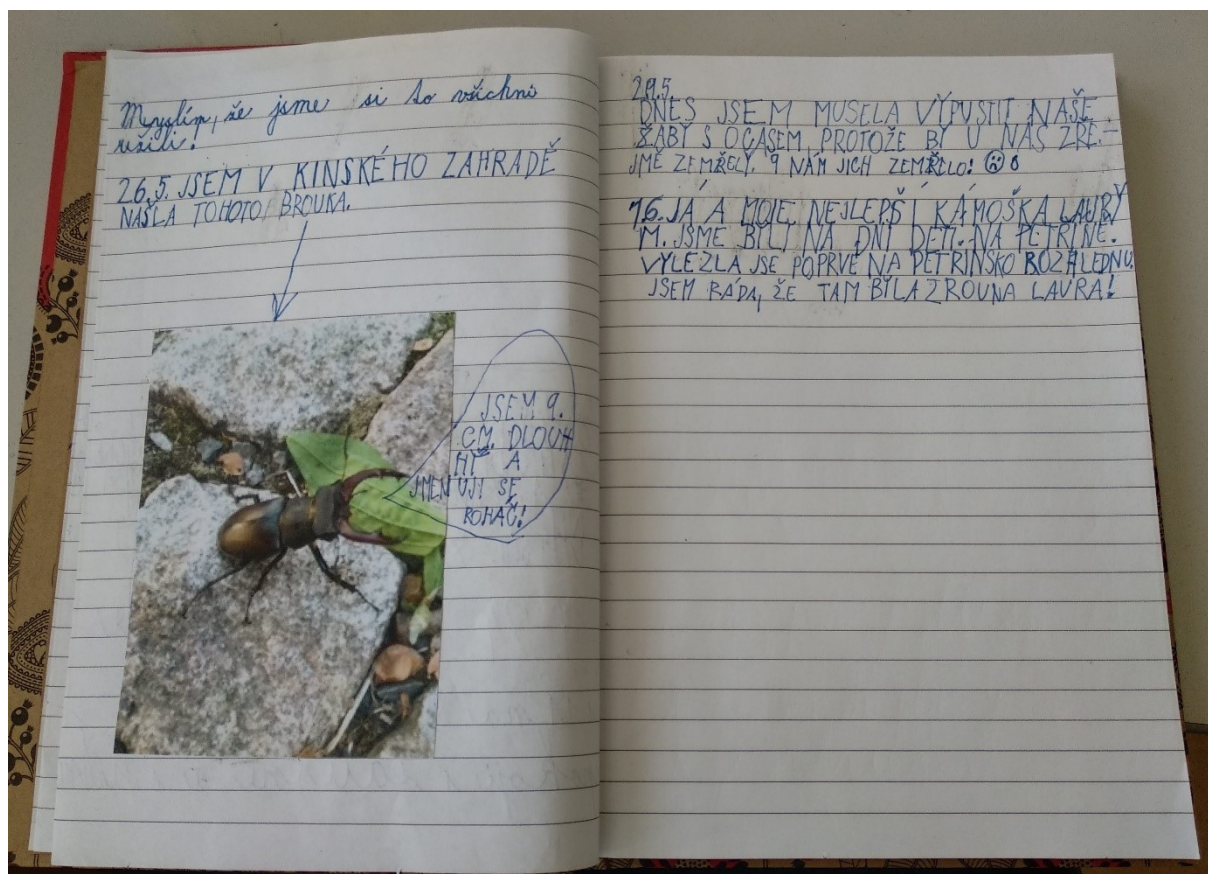 Myslím, že jsme si to všichni
užili!
26.5. JSEM V KINSKÉHO ZAHRADĚ
NAŠLA TOHOTO BROUKA.
JSEM 9.
CM. DLOUH
HÝ A
JMENUJI SE
ROHÁČ!
29.5.
DNES JSEM MUSELA VYPUSTIT NAŠE
ŽABY S OCASEM, PROTOŽE BY U NÁS ZŘE-
JMĚ ZEMŘELY. 9 NÁM JICH ZEMŘELO!
1.6. JÁ A MOJE NEJLEPŠÍ KÁMOŠKA LAURY
M. JSME BYLY NA DNI DĚTÍ. NA PETŘÍNĚ.
VYLEZLA JSE POPRVÉ NA PETŘÍNSKO ROZHLEDNU.
JSEM RÁDA, ŽE TAM BYLA ZROVNA LAURA!